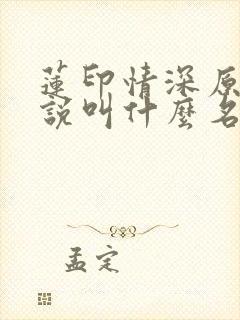 蓮印情深原
說叫什麼名
孟定